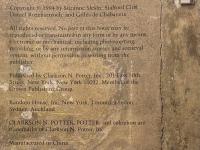 Copyright © 1994 by Suzanne Slesin, Stafford Cliff,
Daniel Rozensztroch, and Gilles de Chabaneix
All rights reserved. No part of this book may be
reproduced or transmitted in any form or by any means,
electronic or mechanical, including photocopying,
recording, or by any information storage and retrieval
system, without permission in writing from the
publisher.
Published by Clarkson N. Potter, Inc., 201 East 50th
Street, New York, New York 10022. Member of the
Crown Publishing Group.
Random House, Inc. New York, Toronto, London,
Sydney, Auckland
CLARKSON N. POTTER, POTTER, and colophon are
trademarks of Clarkson N. Potter, Inc.
Manufactured in China